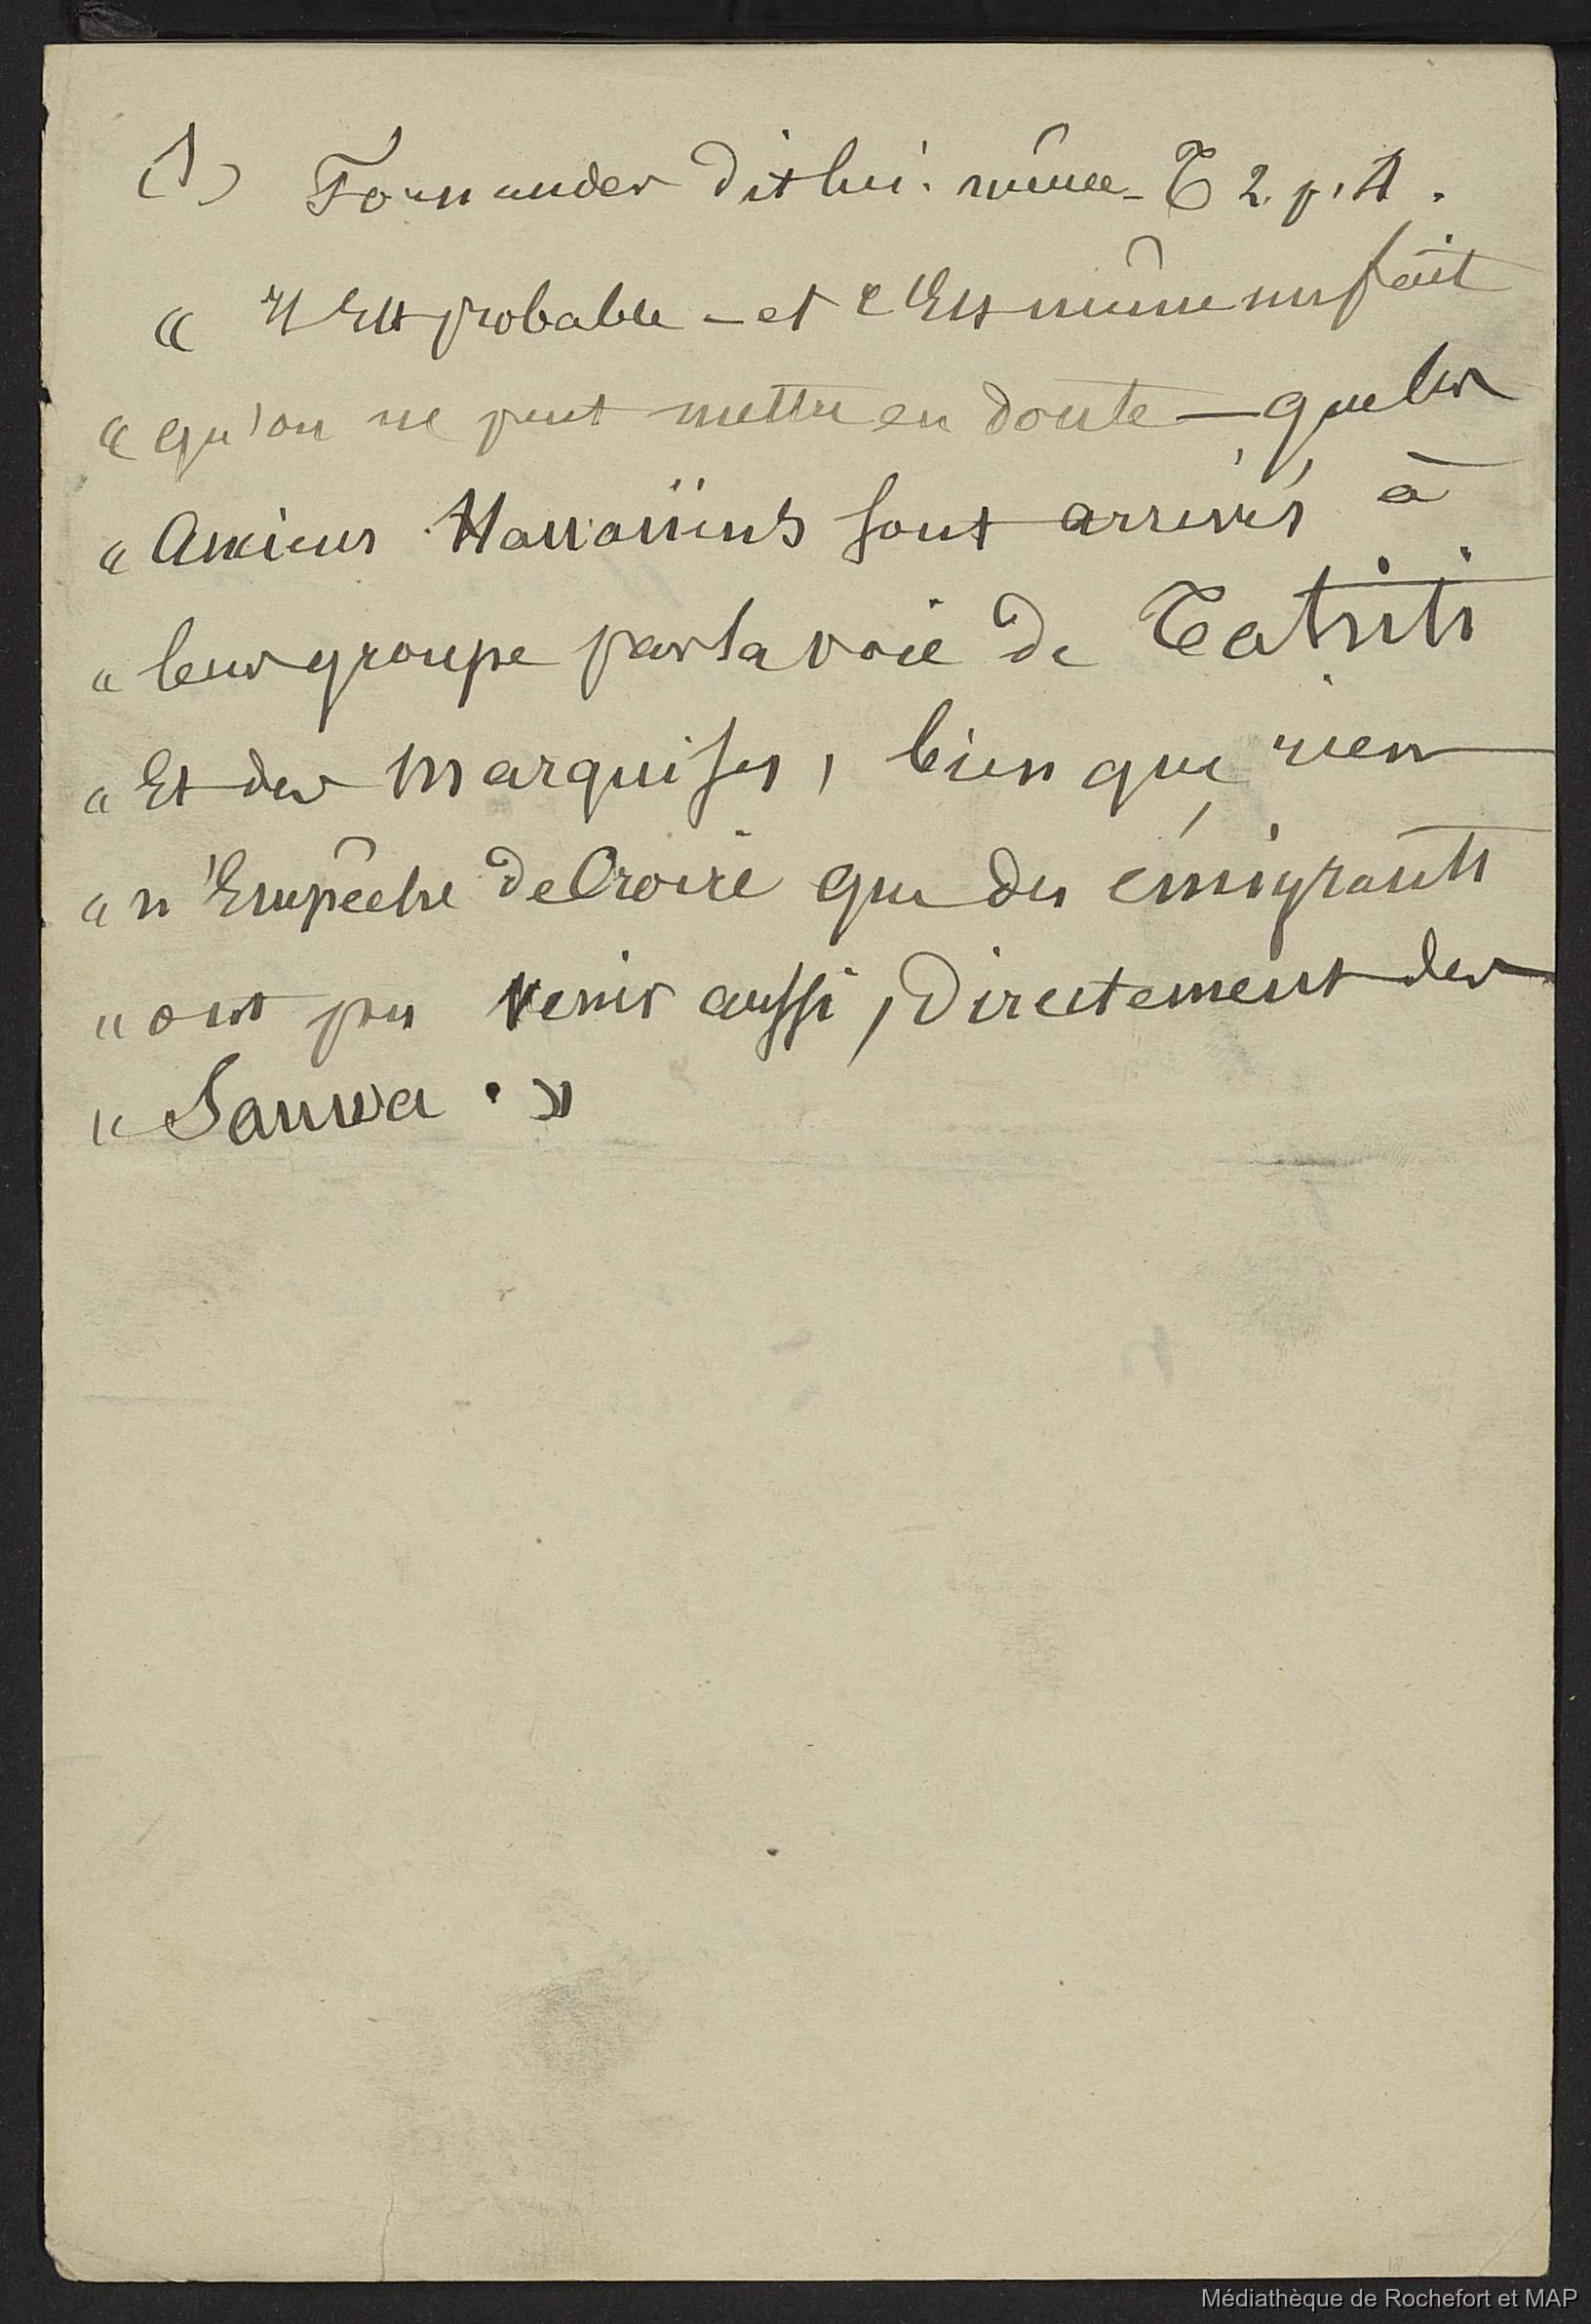 (1) Fornander dit lui-même - T 2. p. 4.
« Il Est probable - et c'Est même un fait
« qu'on ne peut mettre en doute - que les
« Anciens Hawaïiens sont arrivés à
« leur groupe par la voie de Tahiti
« Et des Marquises, bien que rien
« n'Empêche de Croire que des émigrants
« ont pu venir aussi, directement des
« Samoa. »
Médiathèque de Rochefort et MAP